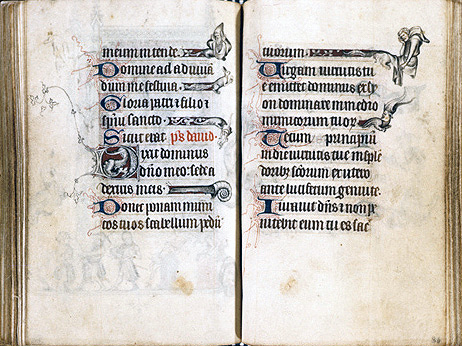 meum intende.
Domine ad adiuuan
dum me festina.
Gloria patri & filio &
spũi sancto.
Sicut erat. ps dauid.
Dixit dominus
dño meo: sede a
dextris meis.
Donec ponam inimi
cos tuos scabellum pedũ
tuorum.
Virgam uirtutis tu
e emittet dominus ex sy
on dominare in medio
inimicorum tuoꝝ
Tecum principiũ
in die uirtutis tue in splē
dorib; scõrum ex utero
ante luciferum genui te.
Iurauit dñs & non pe
nitebit eum tu es sac